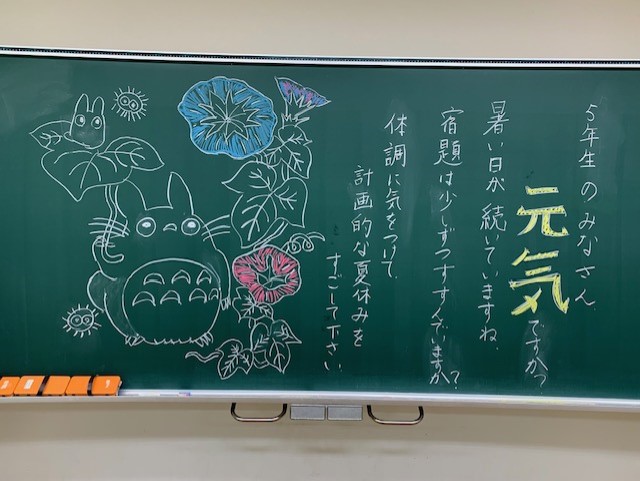 5年生のみなさん
元気ですか?
暑い日が続いていますね。
宿題は少しずつすすんでいますか?
体調に気をつけて、
計画的な夏休みを
すごして下さい